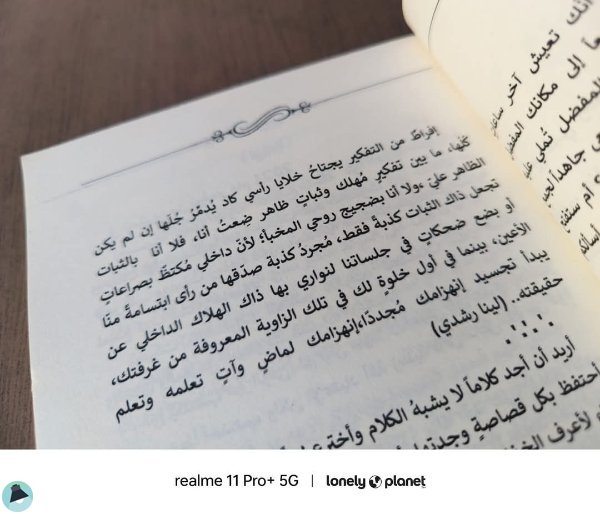 إفراطٌ من التفكير يجتاحُ خلايا رأسي كاد يُدمّرُ جُلّها إن لم يكن
كلّها، ما بين تفكيرٍ مُهلك وثباتٍ ظاهر ضِعتُ أنا، فلا أنا بالثبات
الظاهر عليّ ،ولا أنا بضجيج روحي المخبأ؛ لأنّ داخلي مُكتظّ بصراعاتٍ
تجعل ذاك الثبات كذبةً فقط، مُجردُ كذبة صدّقها من رأى ابتسامةً منّا
أو بضع ضحكاتٍ في جلساتنا لنواري بها ذاك الهلاك الداخلي عن
الأعين، بينما في أول خلوةٍ لك في تلك الزاوية المعروفة من غرفتك،
يبدأ تجسيد إنهزامك مُجددًا،إنهزامك لماضٍ وآتٍ تعلمه وتعلم
حقيقته.. (لينا رشدي)
أريد أن أجد كلاماً لا يشبهُ الكلام
أحتفظ بكل قصاصةٍ وجدتها
لأعرف
أنك تعيش آخر
إلى مكانك
المفضل تُملي
أم
realme 11 Pro+ 5G | lonely planet